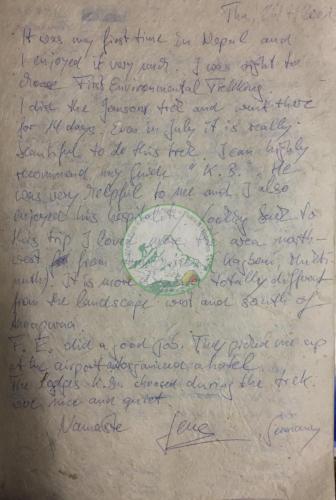 It was my first time in Nepal and
I enjoyed it very much. I was right to
choose First Environmental Trekking.
I did the Jomsom trek and was there
for 14 days. Even in July it is really
beautiful to do this trek. I can highly
recommend my Guide "K. B." He
was very helpful to me and I also
enjoyed his hospitality. Looking back to
this trip I loved more the area north-
west from Kagbeni
It is more totally different
from the landscape west and south of
Annapurna.
F. E. did a good job. They picked me up
at the airport and organized a hotel.
The Lodges K.B. choosed during the trek
were nice and quiet.
Namaste Germany